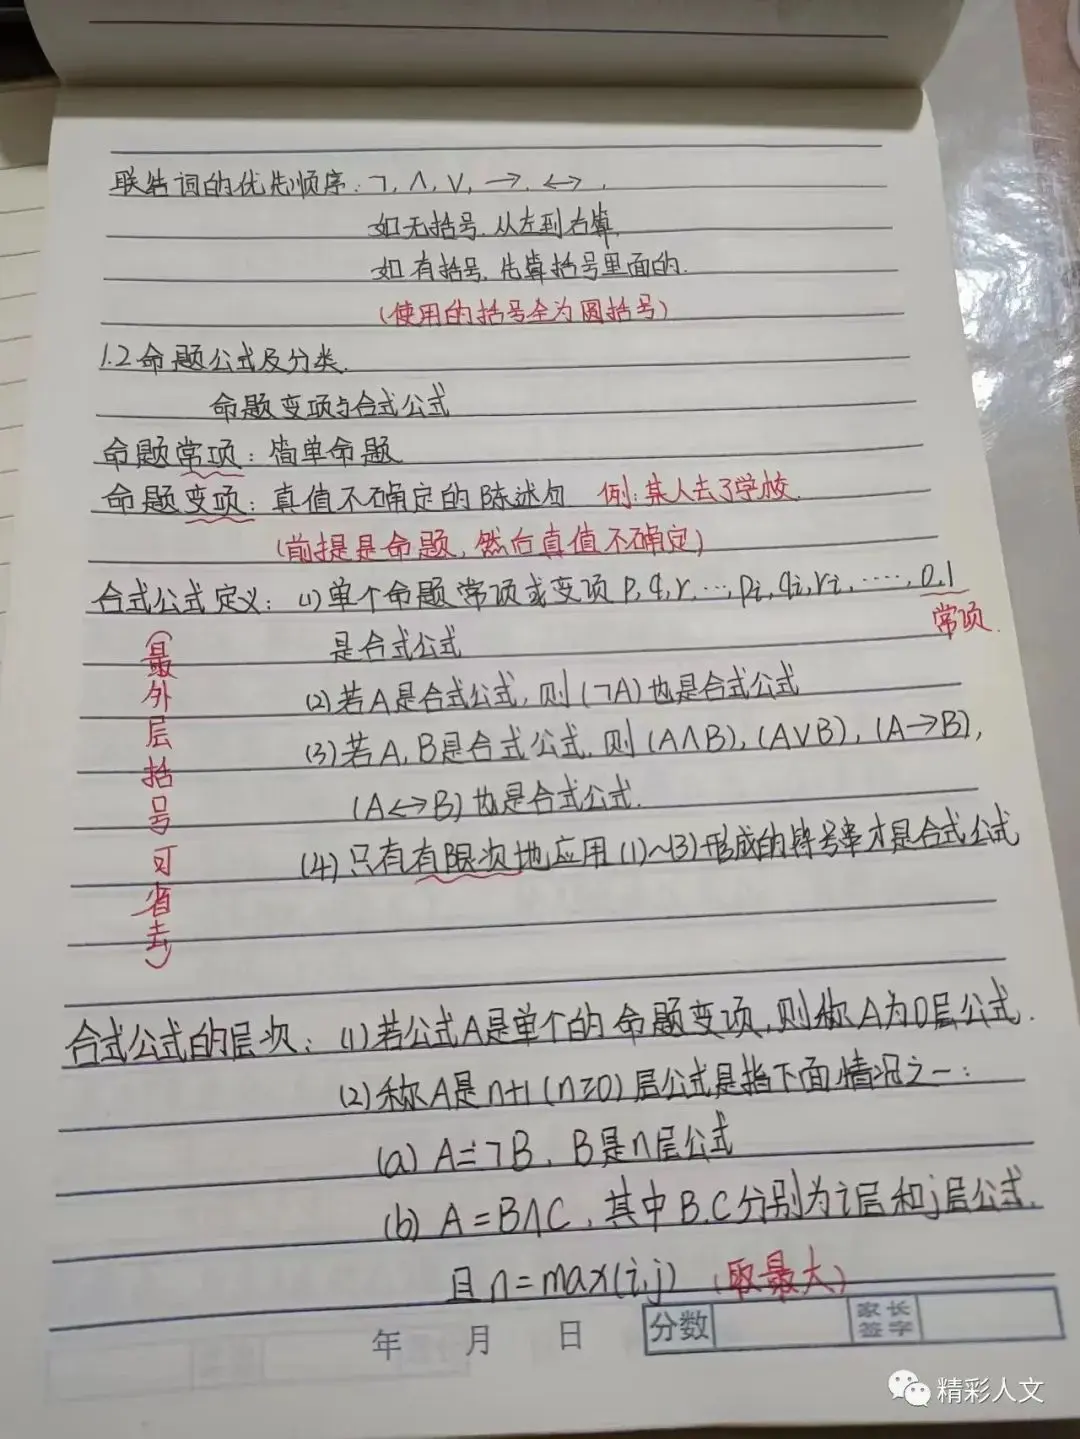 联结词的优先顺序:¬,∧,∨,→,↔.
如无括号,从左到右算,
如有括号,先算括号里面的.
(使用的括号全为圆括号)
1.2命题公式及分类.
命题变项与合式公式
命题常项:简单命题
命题变项:真值不确定的陈述句 例:某人去了学校.
(前提是命题,然后真值不确定)
合式公式定义:(1)单个命题常项或变项p,q,r,…,pi,qi,ri,……,0,1
常项.
是合式公式
(最外层括号可省去)
(2)若A是合式公式,则(¬A)也是合式公式
(3)若A,B是合式公式,则(A∧B),(A∨B),(A→B),
(A↔B)也是合式公式.
(4)只有有限次地应用(1)~(3)形成的符号串才是合式公式
合式公式的层次:(1)若公式A是单个的命题变项,则称A为0层公式.
(2)称A是n+1(n≥0)层公式是指下面情况之一:
(a)A=¬B,B是n层公式
(b)A=B∧C,其中B.C分别为i层和j层公式.
且n=max(i,j) (取最大)
年 月 日 分数 家长签字
精彩人文